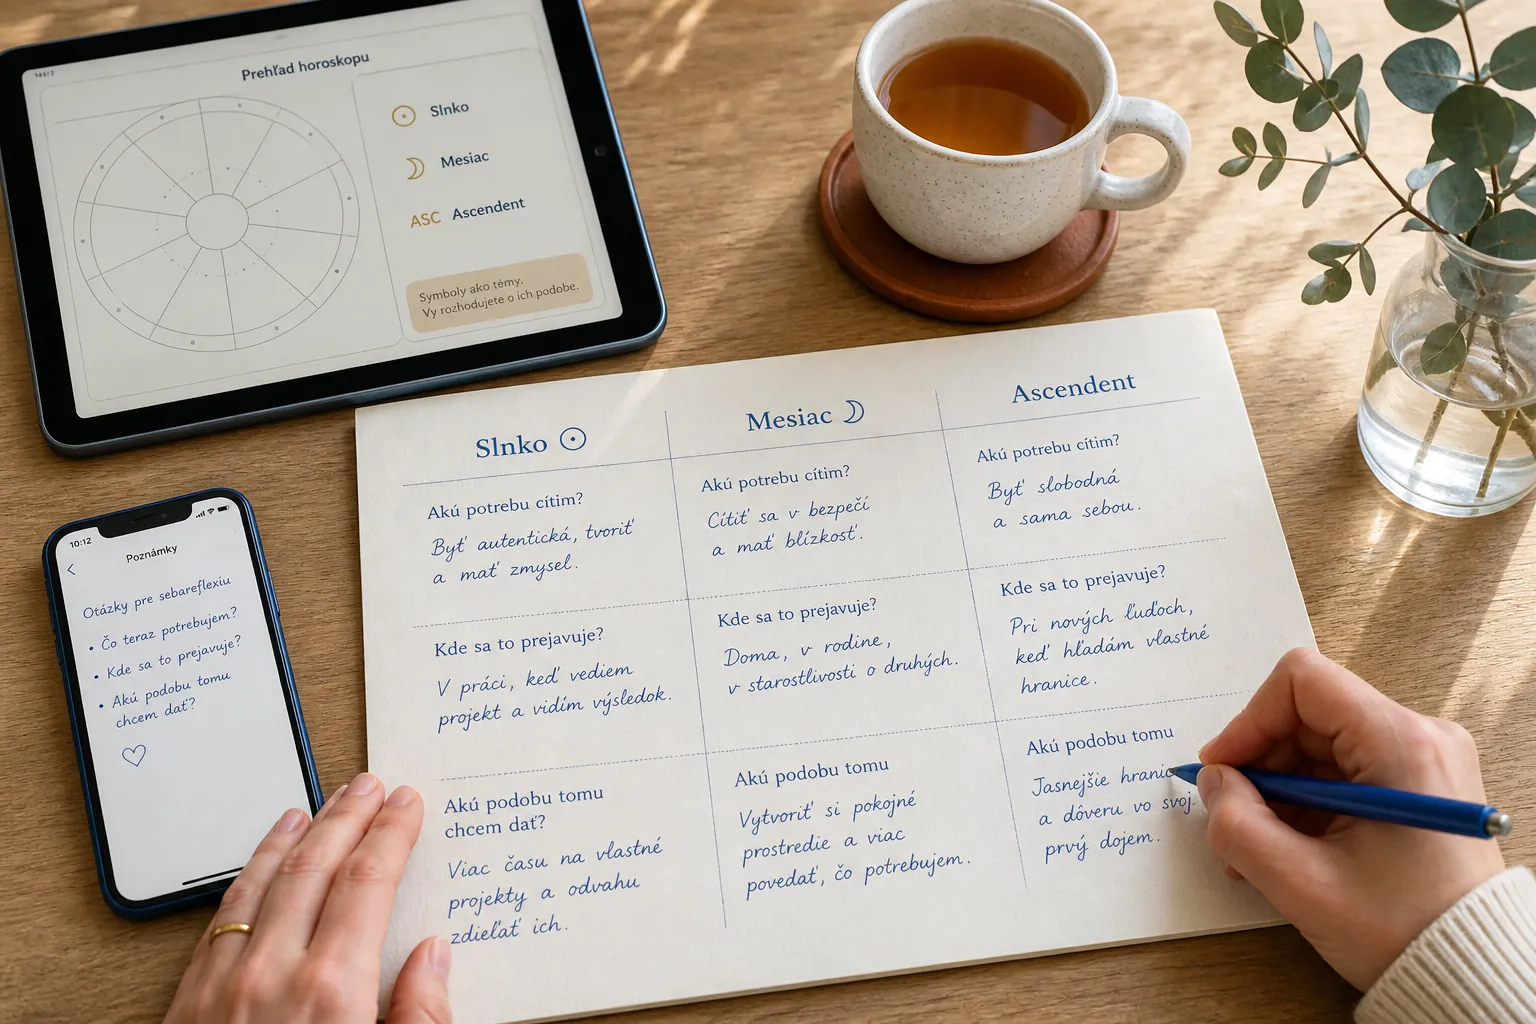 Prehľad horoskopu
Slnko
Mesiac
ASC Ascendent
Symboly ako témy.
Vy rozhodujete o ich podobe.
10:12
Poznámky
Otázky pre sebareflexiu
• Čo teraz potrebujem?
• Kde sa to prejavuje?
• Akú podobu tomu
chcem dať?
Slnko
Akú potrebu cítim?
Byť autentická, tvoriť
a mať zmysel.
Kde sa to prejavuje?
V práci, keď vediem
projekt a vidím výsledok.
Akú podobu tomu
chcem dať?
Viac času na vlastné
projekty a odvahu
zdieľať ich.
Mesiac
Akú potrebu cítim?
Cítiť sa v bezpečí
a mať blízkosť.
Kde sa to prejavuje?
Doma, v rodine,
v starostlivosti o druhých.
Akú podobu tomu
Vytvoriť si pokojné
prostredie a viac
povedať, čo potrebujem.
Ascendent
Akú potrebu cítim?
Byť slobodná
a sama sebou.
Kde sa to prejavuje?
Pri nových ľuďoch,
keď hľadám vlastné
hranice.
Akú podobu tomu
Jasnejšie hranic
a dôveru vo svoj
prvý dojem.